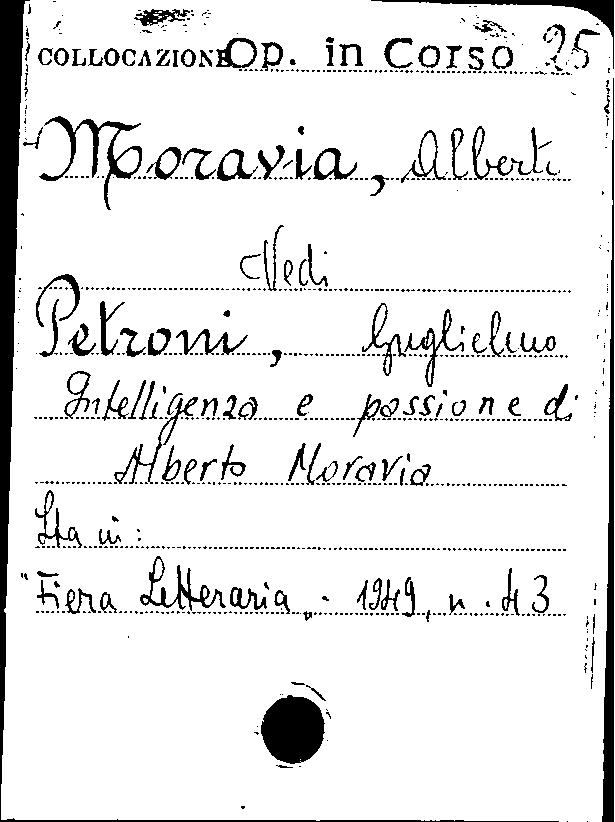 COLLOCAZIONE Op. in Corso 25
Moravia, Alberto
Vedi
Petroni, Guglielmo
Intelligenza e passione di
Alberto Moravia
Sta in:
"Fiera Letteraria„. 1949, n. 43